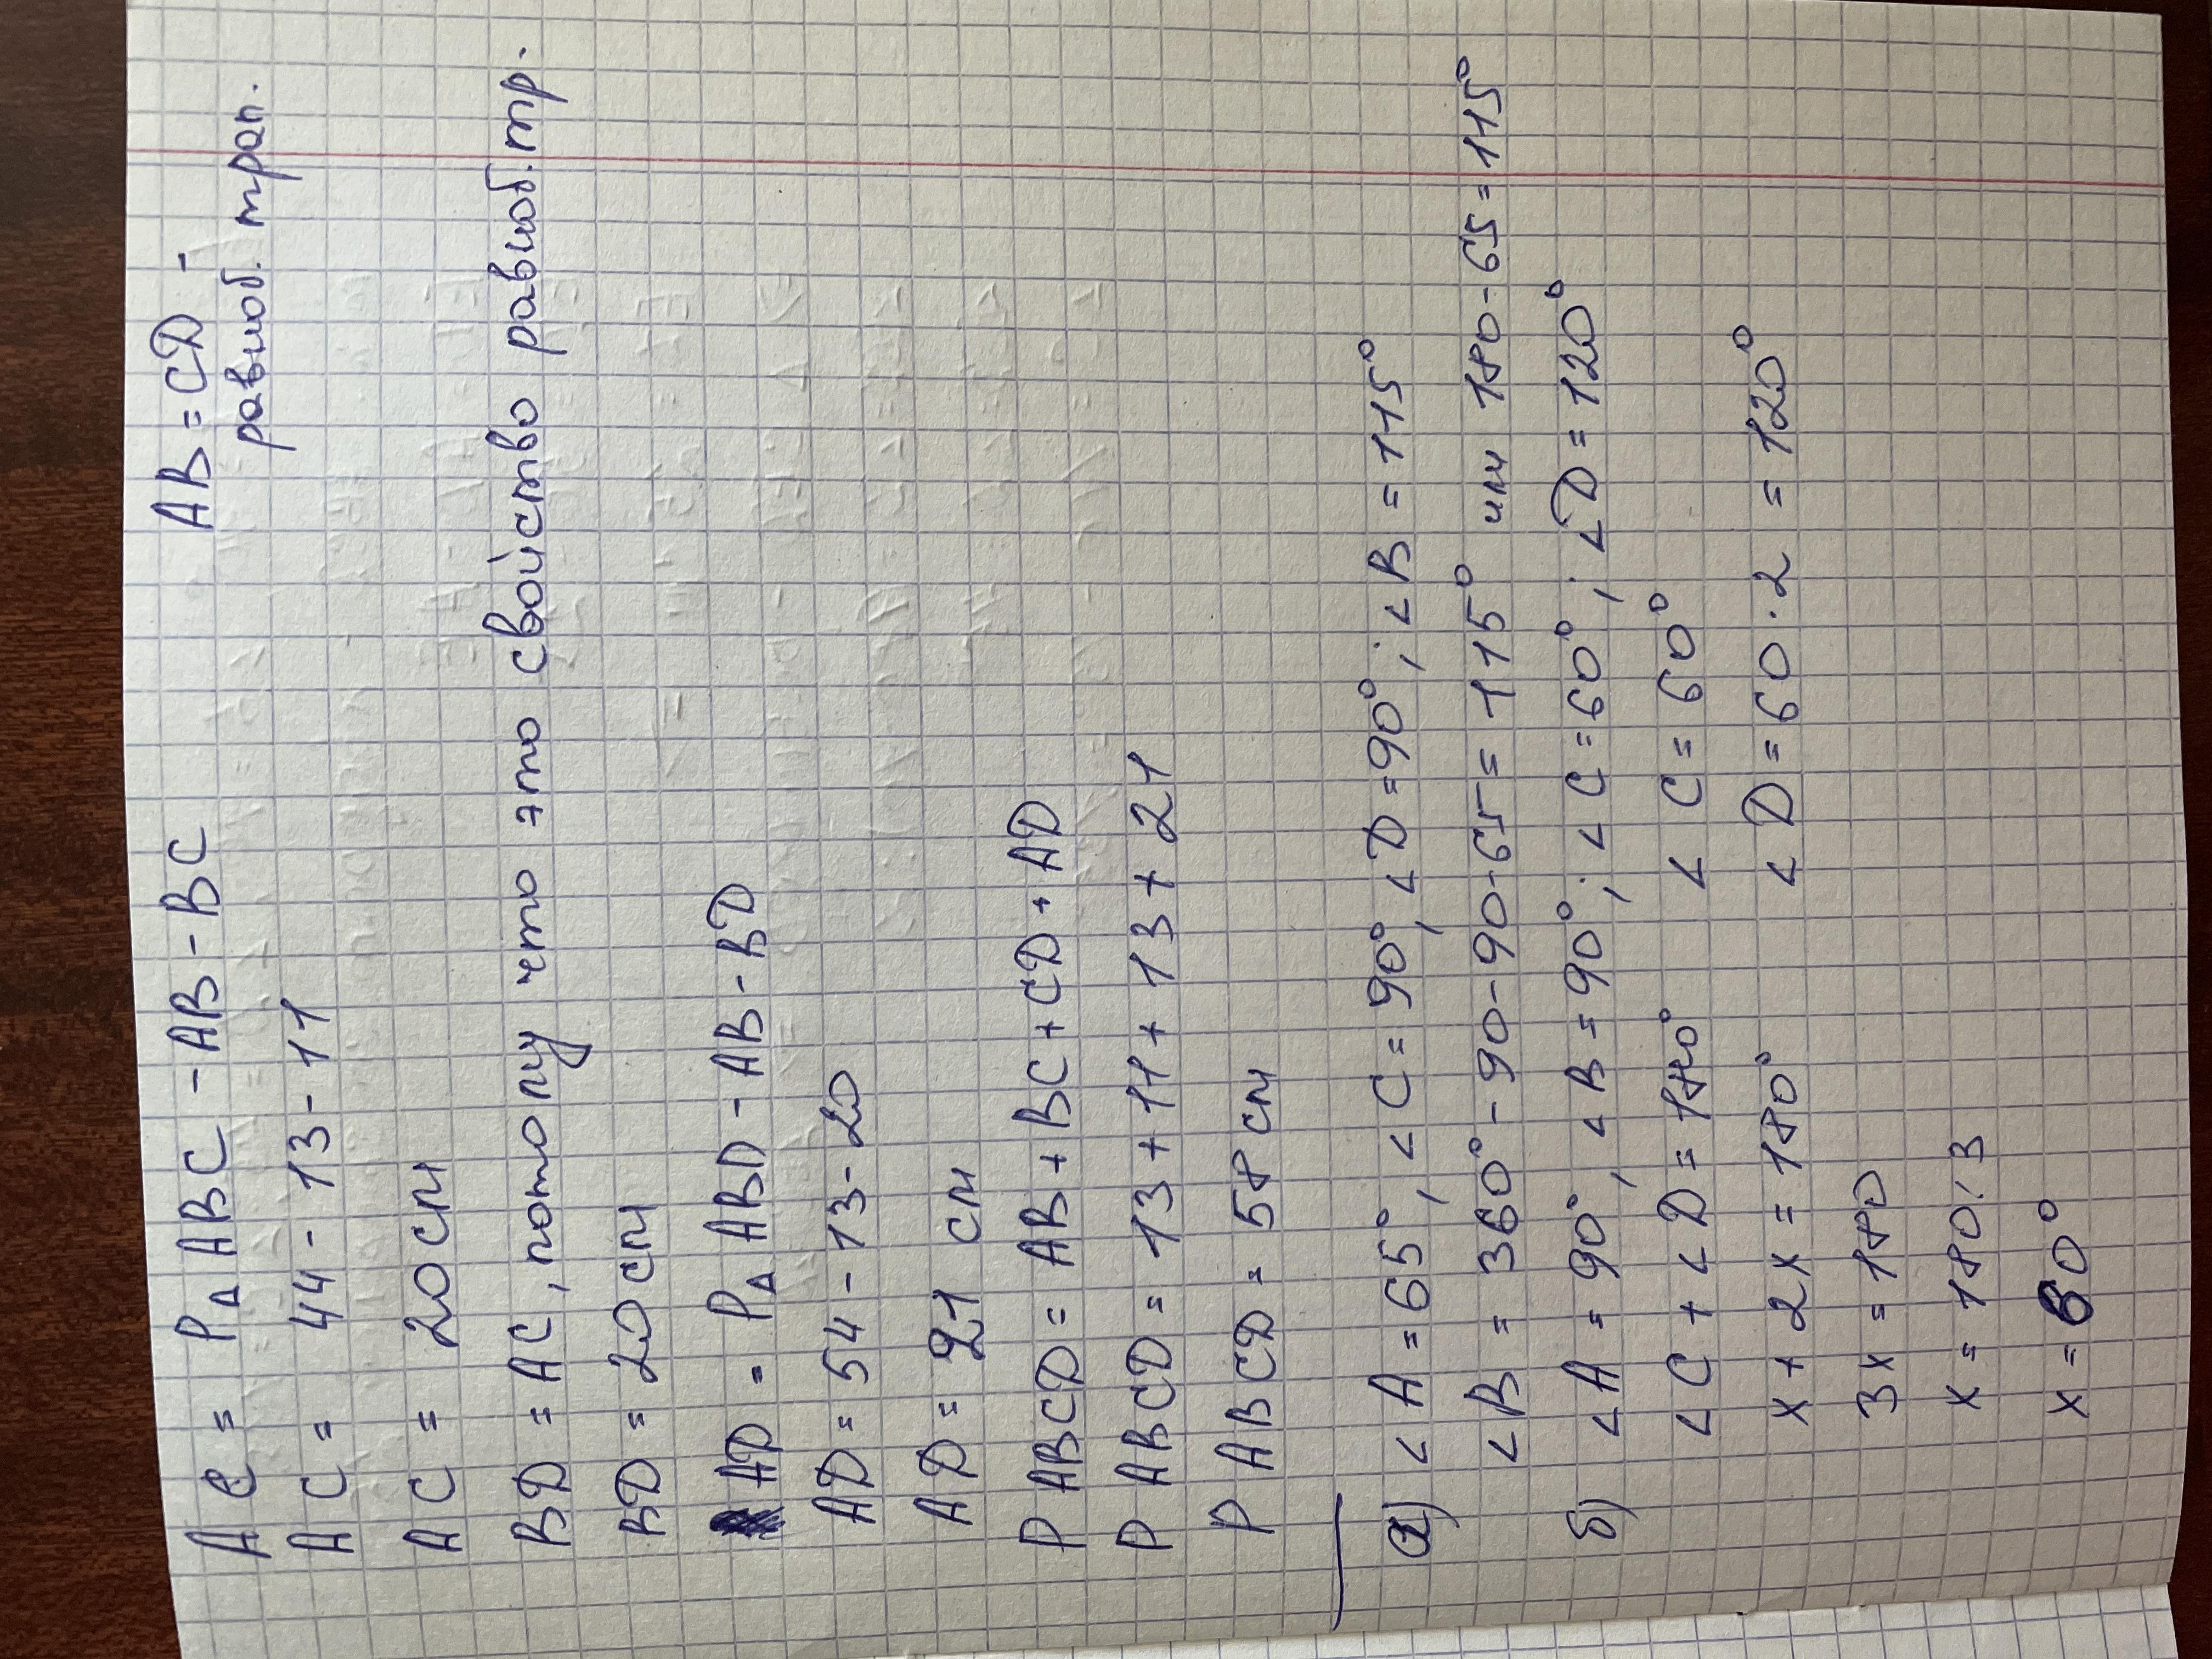 AC = P△ABC - AB - BC
AB = CD -
равноб. трап.
AC = 44 - 13 - 11
AC = 20 см
BD = AC, потому что это свойство равноб. тр.
BD = 20 см
AD = P△ABD - AB - BD
AD = 54 - 13 - 20
AD = 21 см
P ABCD = AB + BC + CD + AD
P ABCD = 13 + 11 + 13 + 21
P ABCD = 58 см
а) ∠A = 65°, ∠C = 90°, ∠D = 90°; ∠B = 115°
∠B = 360° - 90 - 90 - 65 = 115° или 180 - 65 = 115°
б) ∠A = 90°, ∠B = 90°; ∠C = 60°; ∠D = 120°
∠C + ∠D = 180° ∠C = 60°
x + 2x = 180° ∠D = 60 · 2 = 120°
3x = 180
x = 180 : 3
x = 60°